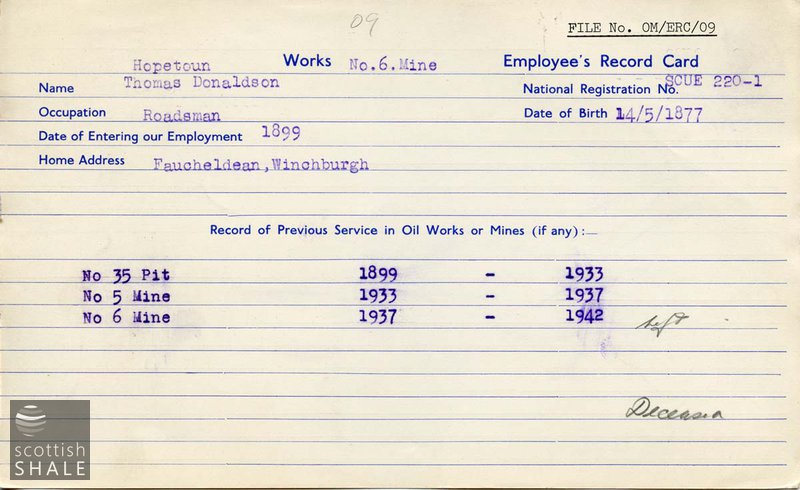 09
FILE No. OM/ERC/09
Hopetoun Works No.6.Mine Employee's Record Card
Name Thomas Donaldson National Registration No. SCUE 220-1
Occupation Roadsman Date of Birth 14/5/1877
Date of Entering our Employment 1899
Home Address Faucheldean,Winchburgh
Record of Previous Service in Oil Works or Mines (if any) :—
No 35 Pit 1899 - 1933
No 5 Mine 1933 - 1937
No 6 Mine 1937 - 1942 left
Deceased
scottish
SHALE